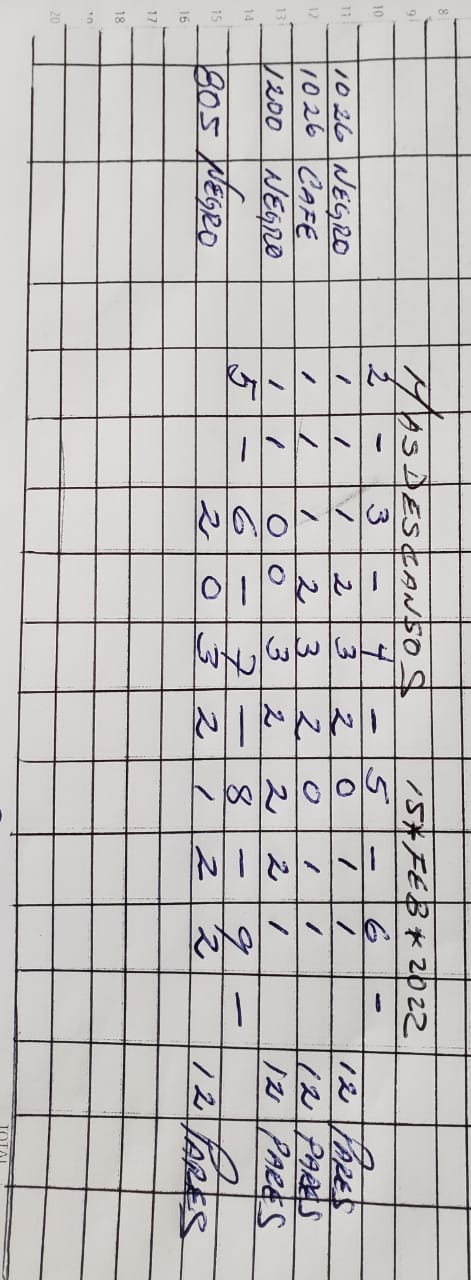 8
9 MAS DESCANSOS 15*FEB*2022
10 2 - 3 - 4 - 5 - 6 -
11 1026 NEGRO 1 1 1 2 3 2 0 1 1 12 PARES
12 1026 CAFE 1 1 1 2 3 2 0 1 1 12 PARES
13 1200 NEGRO 1 1 0 0 3 2 2 2 1 12 PARES
14 5 - 6 - 7 - 8 - 9 -
15 805 NEGRO 2 0 3 2 1 2 2 12 PARES
16
17
18
19
20
TOTAL